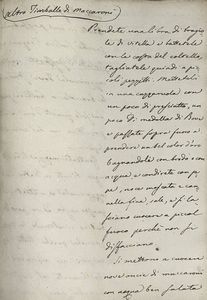 altro Timballo di Maccaroni
Prendete una libra di bragio
le di vitella e battetele
con la costa del coltello,
tagliatele quindi a pic
coli pezzetti. Mettetele
in una cazzarola con
un poco di presciutto, un
poco di medolla di Bove
e passate sopra fuoco a
prendere un bel color d'oro
bagnandola con brodo o con
acqua e condirete con pe
pe, noce moscata e can
nella fina, sale, e si la
sciano cuocere a piccol
fuoco perché non si
disfacciano.
Si mettono a cuocere
nove oncie di maccaroni
con acqua ben salata